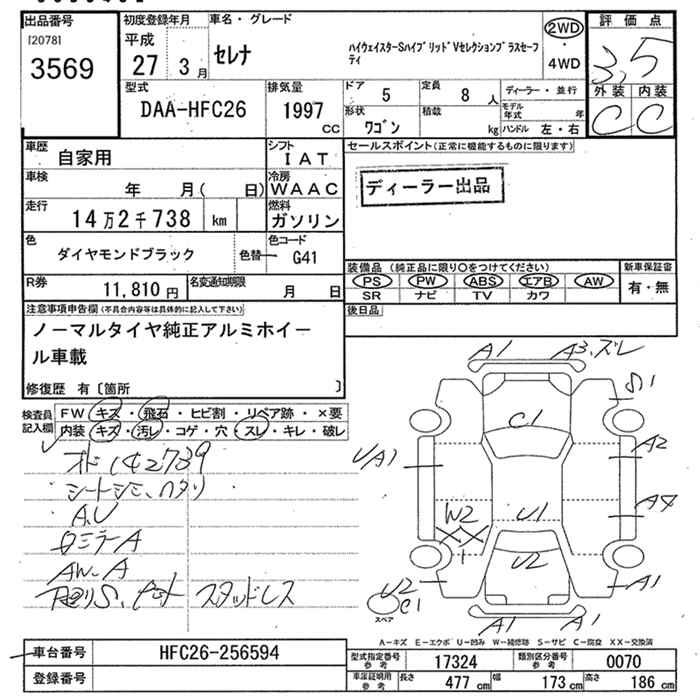 出品番号
[2078]
3569
初度登録年月
平成
27 3月
車名・グレード
セレナ
ハイウェイスターSハイブリッドVセレクションプラスセーフ
ティ
2WD
・
4WD
評価点
3.5
外装 内装
C C
型式
DAA-HFC26
排気量
1997
CC
ドア
5
定員
8 人
形状
ワゴン
積載
kg
ディーラー・並行
モデル
年式 年
ハンドル 左・右
車歴
自家用
シフト
IAT
車検
年 月( 日)
冷房
WAAC
走行
14万2千738 km
燃料
ガソリン
色
ダイヤモンドブラック
色替
色コード
G41
R券
11,810 円
名変通知期限
月 日
セールスポイント(正常に機能するものに限ります)
ディーラー出品
装備品 (純正品に限り○をつけてください)
PS PW ABS エアB AW
SR ナビ TV カワ
新車保証書
有・無
後日品
注意事項申告欄(不具合内容等は具体的に記入して下さい)
ノーマルタイヤ純正アルミホイー
ル車載
修復歴 有〔箇所 〕
検査員
記入欄
FW キズ・飛石・ヒビ割・リペア跡・×要
内装 キズ・汚レ・コゲ・穴・スレ・キレ・破レ
オド142739
シートシミ、ヘタリ
A.U
ロミラーA
AW.A
スタッドレス
A1 A3.ズレ
S1
C1
UA1
A2
W2
U1
A4
XX
1
U2
A1
U2
C1
スペア
A1 A1
A-キズ E-エクボ U-凹み W-補修跡 S-サビ C-腐食 XX-交換済
車台番号
HFC26-256594
登録番号
型式指定番号
参考
17324
類別区分番号
参考
0070
車庫証明用
参考
長さ
477 cm
幅
173 cm
高さ
186 cm